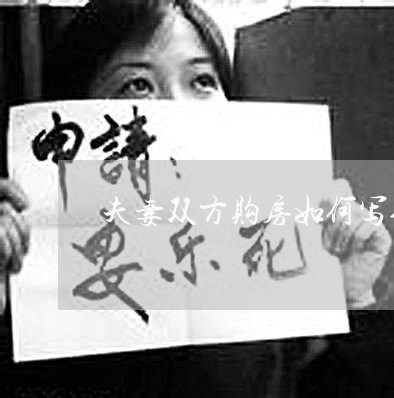 申請：
夫妻双方购房如何写
安乐死